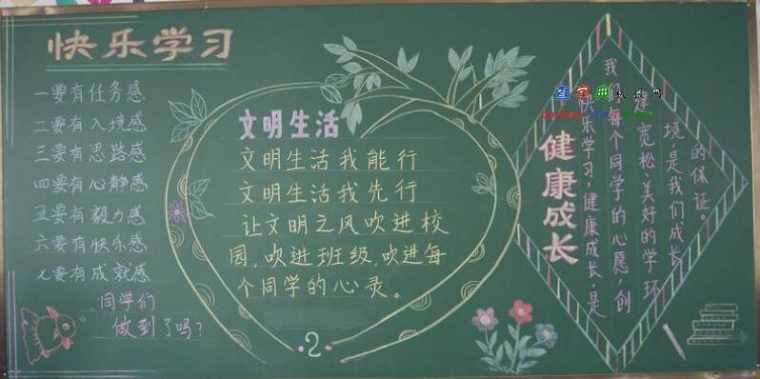 快乐学习
一要有任务感
二要有入境感
三要有思路感
四要有心静感
五要有毅力感
六要有快乐感
七要有成效感
同学们
做到了吗?
文明生活
文明生活我能行
文明生活我先行
让文明之风吹进校
园,吹进班级,吹进每
个同学的心灵。
2
健康成长
快乐学习,健康成长,是
我们每个同学的心愿,创
建宽松、美好的学环
境,是我们成长
的保证。